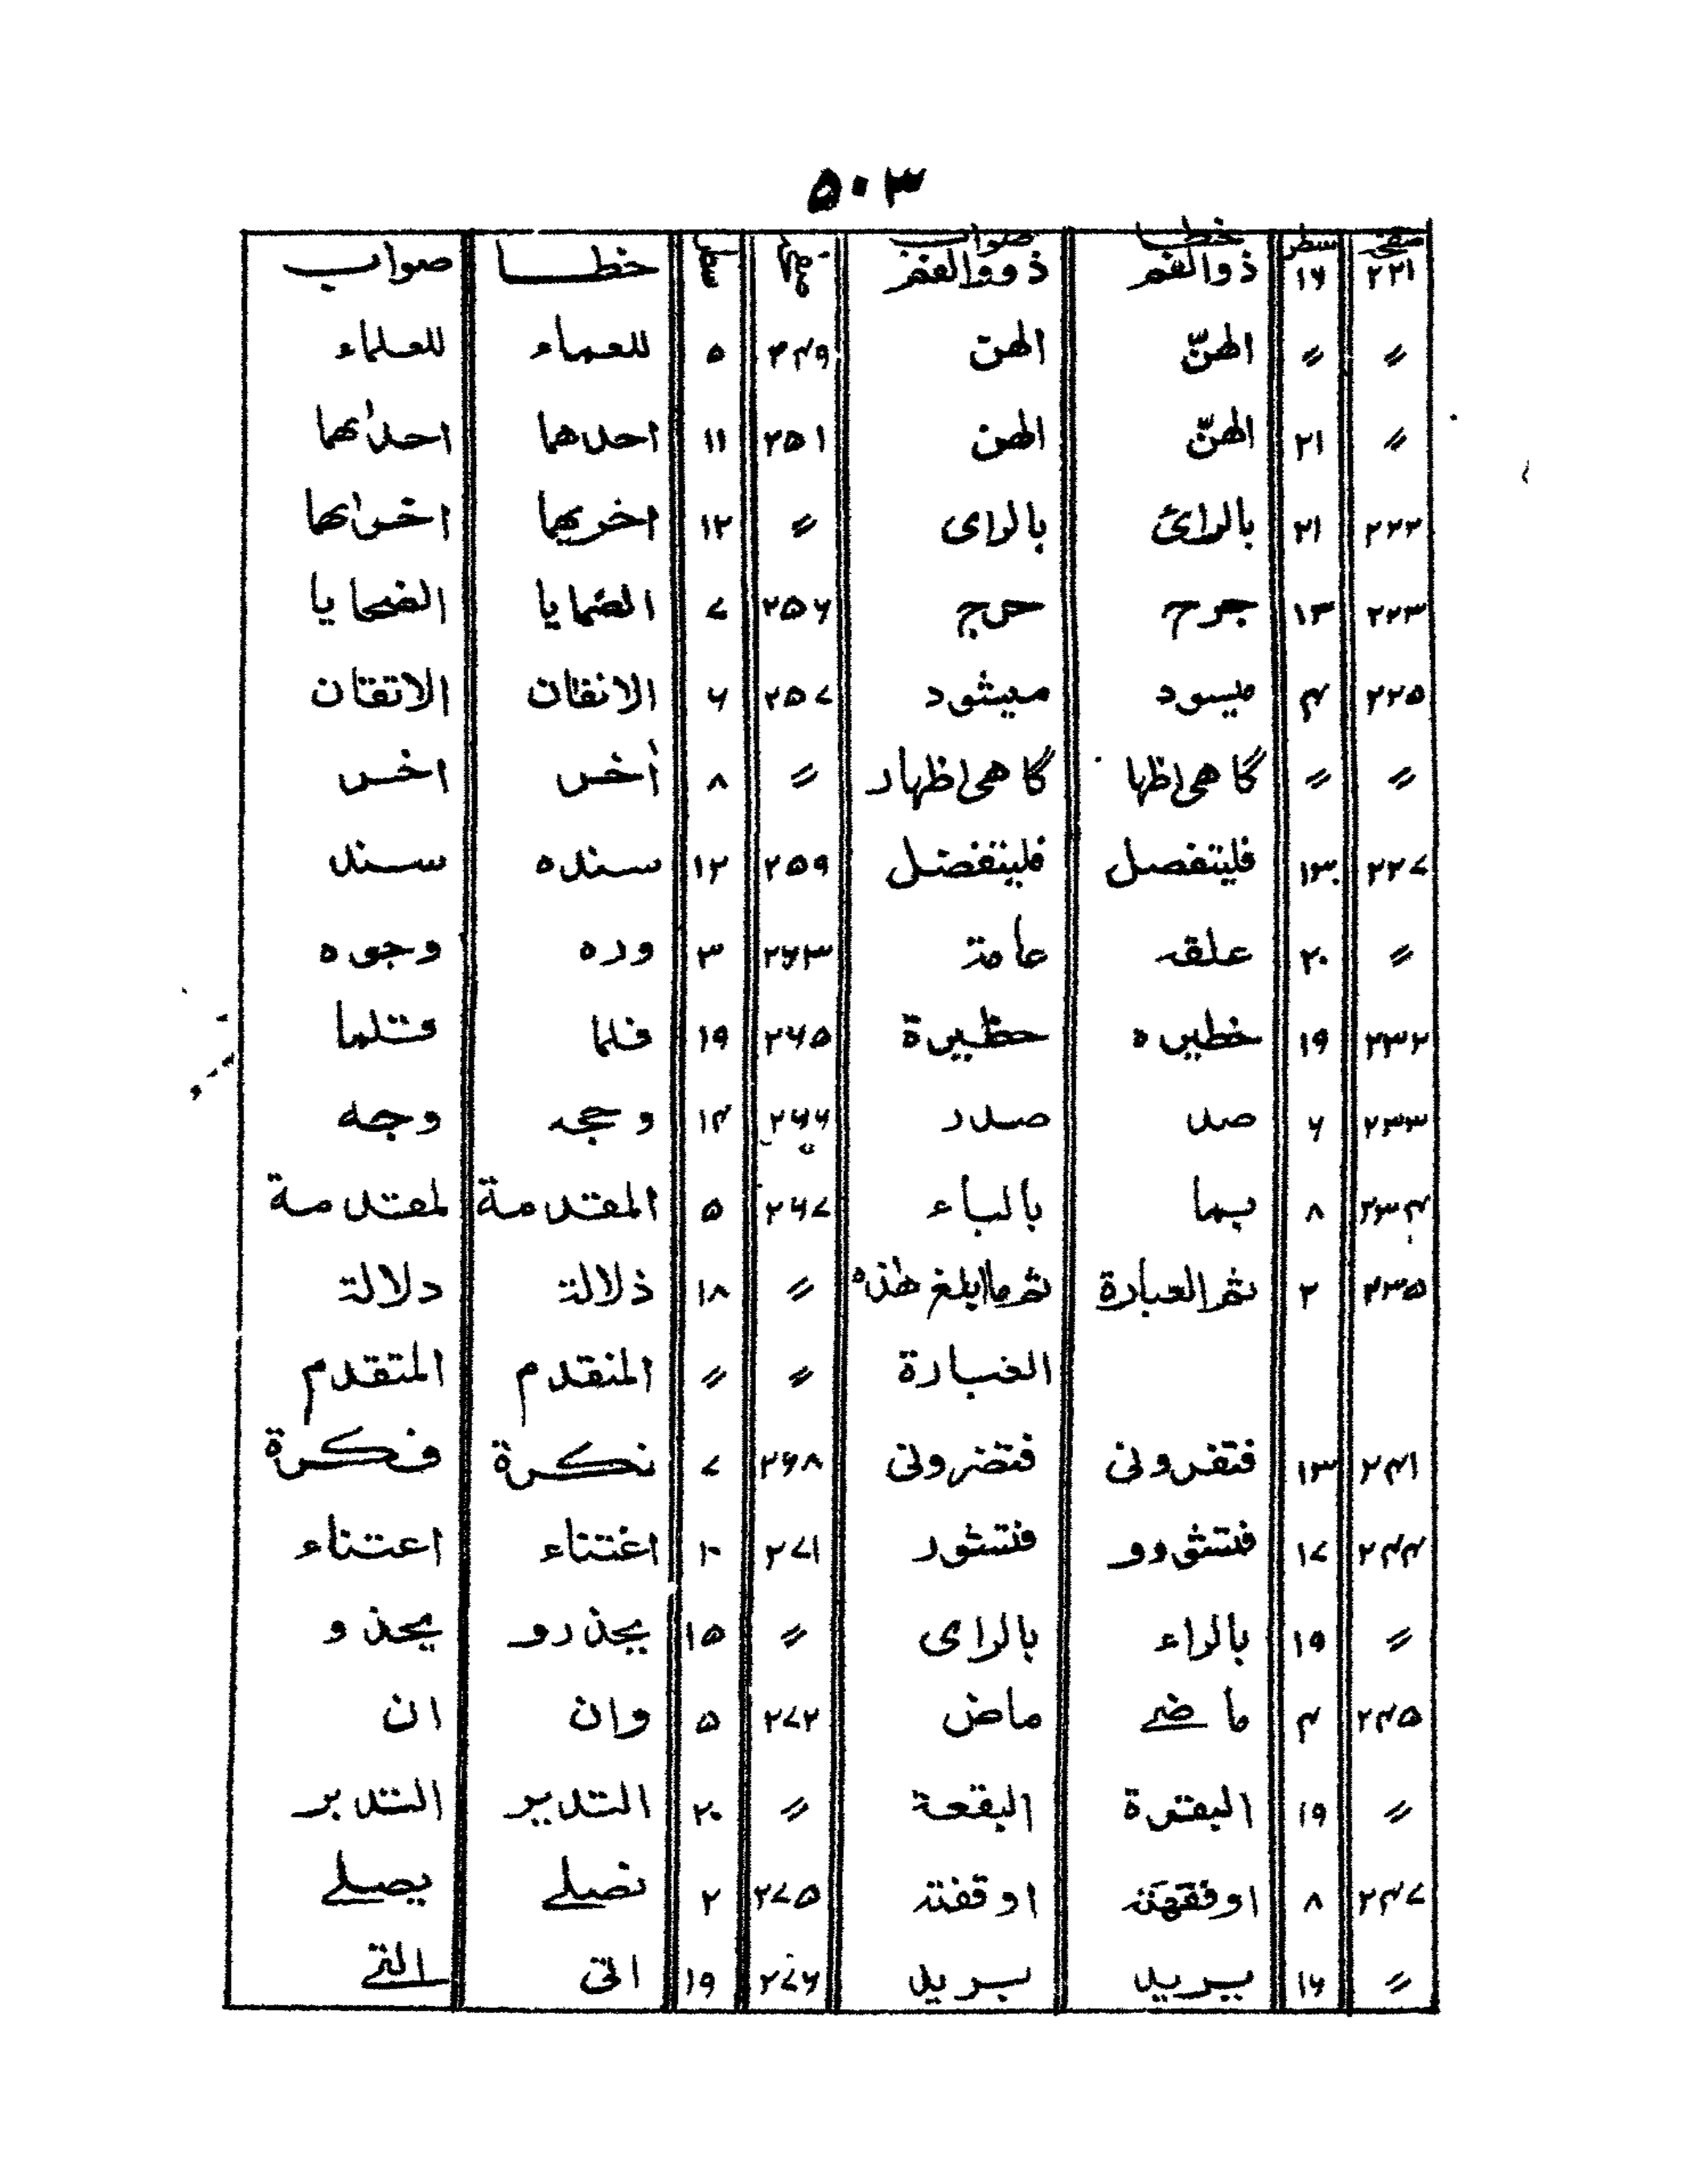 ۵۰۳
صفحہ سطر خطا صواب صفحہ سطر خطا صواب
۲۲۱ ۱۶ ذوالفم ذووالفم
〃 〃 الھنّ الھن ۲۴۹ ۵ للعماء للعلماء
〃 ۲۱ الھنّ الھن ۲۵۱ ۱۱ احدھا احدٰھما
۲۲۲ ۲۱ بالرائ بالرای 〃 ۱۲ اخریھا اخرٰھا
۲۲۳ ۱۳ جرح حرج ۲۵۶ ۷ الضمایا الضحایا
۲۲۵ ۴ میسود میشود ۲۵۷ ۶ الانقان الاتقان
〃 〃 گاھی اظہا گاھی اظہار 〃 ۸ أخر اخر
۲۲۷ ۱۳ فلیتفصل فلیتفضل ۲۵۹ ۱۲ سندہ سند
〃 ۲۰ علقہ عامة ۲۶۳ ۳ ورہ وجوہ
۲۳۲ ۱۹ خطیرہ حظیرة ۲۶۵ ۱۹ فلما قتلہا
۲۳۳ ۶ صد صدر ۲۶۶ ۱۴ وحجہ وجہ
۲۳۴ ۸ بہا بالباء ۲۶۷ ۵ المقدمة لمقدمة
۲۳۵ ۲ ثم العبارة ثم ماابلغ ھذہ 〃 ۱۸ ذلالة دلالة
العبارة 〃 〃 المنقدم المتقدم
۲۴۱ ۱۳ فتفرونی فتضرونی ۲۶۸ ۷ نکرة فکرة
۲۴۴ ۱۷ فتشودو فتشور ۲۷۱ ۱۰ اغتناء اعتناء
〃 ۱۹ بالراء بالرای 〃 ۱۵ یحذرو یحذو
۲۴۵ ۴ ماضے ماض ۲۷۲ ۵ وان ان
〃 ۱۹ البقرة البقعة 〃 ۲۰ التدیر التدبر
۲۴۷ ۸ اوفقهتہ اوقفتہ ۲۷۵ ۲ نصلے یصلے
〃 ۱۶ بیرید برید ۲۷۶ ۱۹ اتی التے